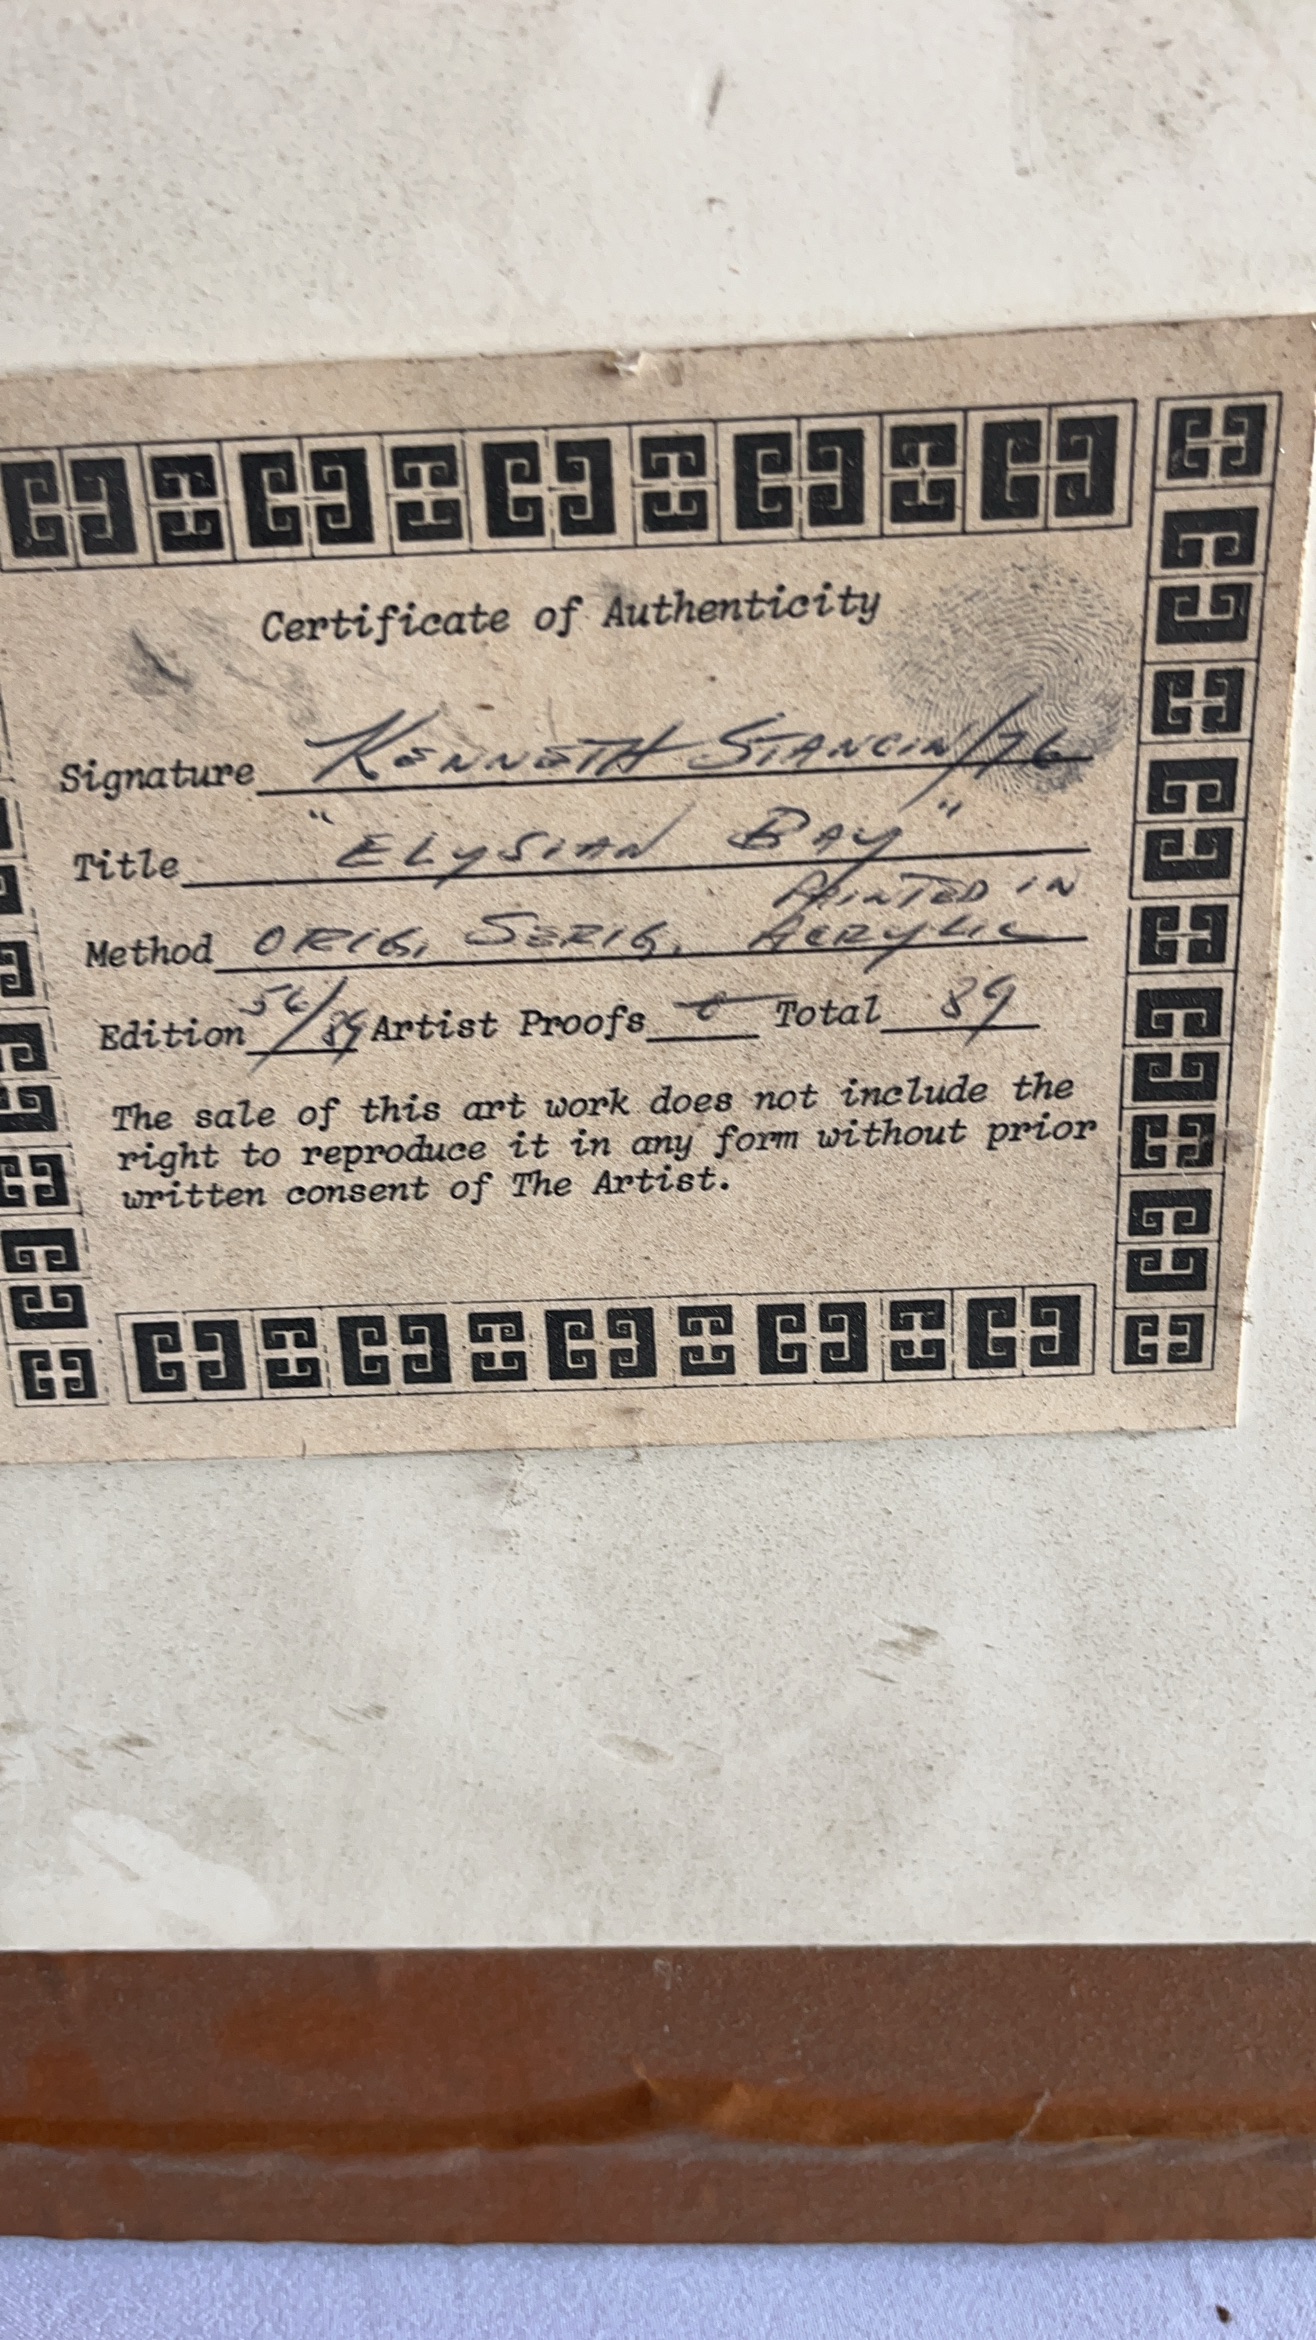 Certificate of Authenticity
Signature KENNETH STANCIN/76
Title "ELYSIAN BAY"
PAINTED IN
Method ORIG. SERIG. ACRYLIC
Edition 56/89 Artist Proofs 0 Total 89
The sale of this art work does not include the
right to reproduce it in any form without prior
written consent of The Artist.